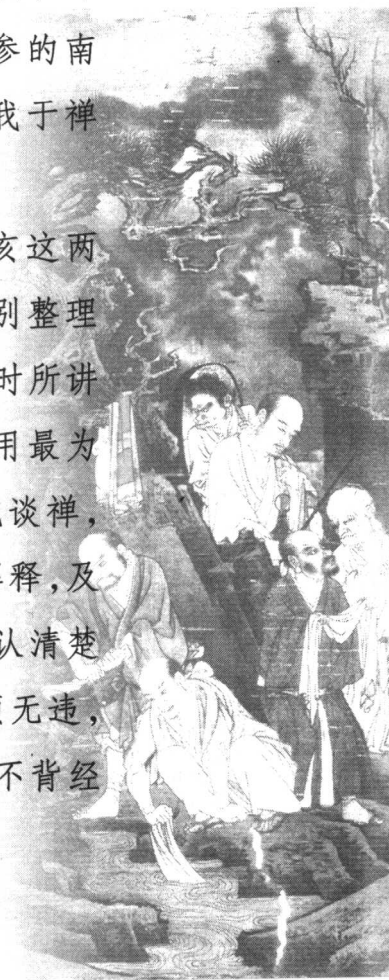 参的南
我于禅
该这两
别整理
时所讲
用最为
谈禅，
释，及
认清楚
无违，
不背经